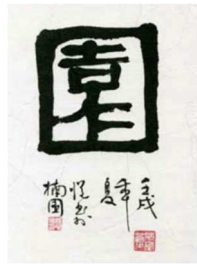 園
壬戌
年
夏
書於
楠園